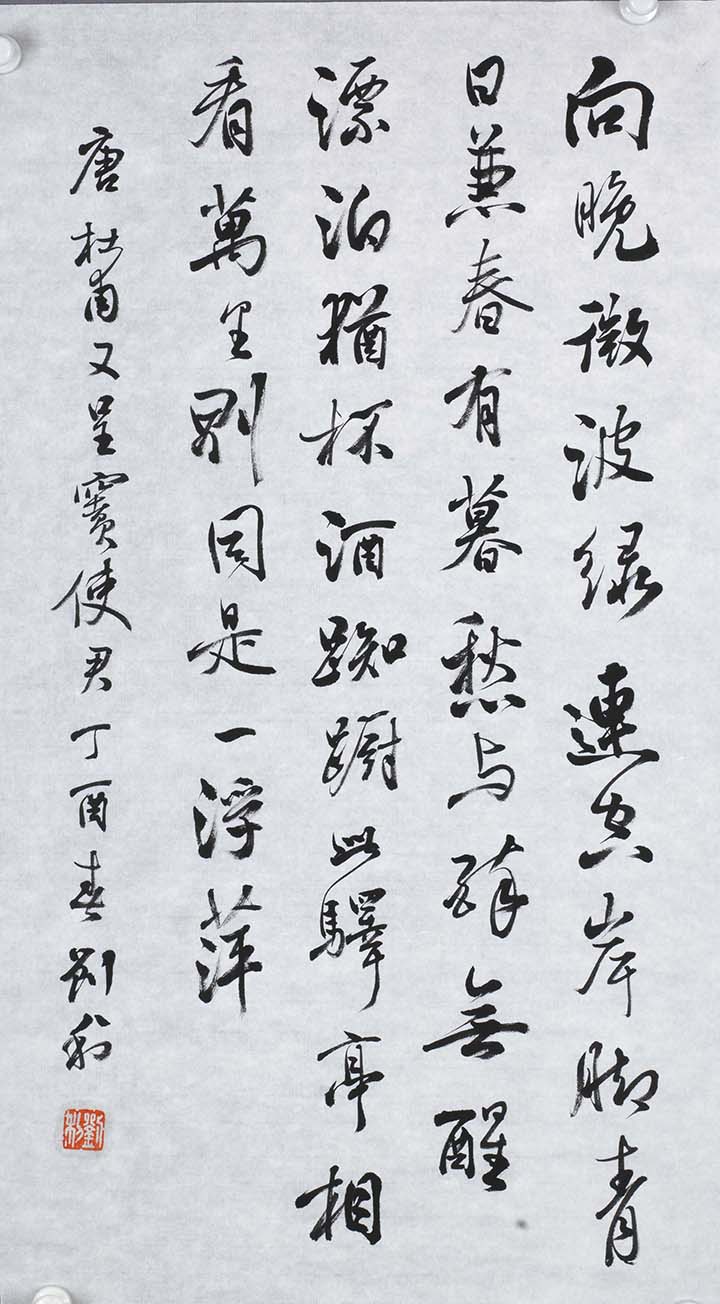 向晚微波绿連空岸脚青
日兼春有暮愁与醉無醒
漂泊猶杯酒踟蹰此驛亭相
看萬里别同是一浮萍
唐杜甫又呈竇使君丁酉春刘利
劉利